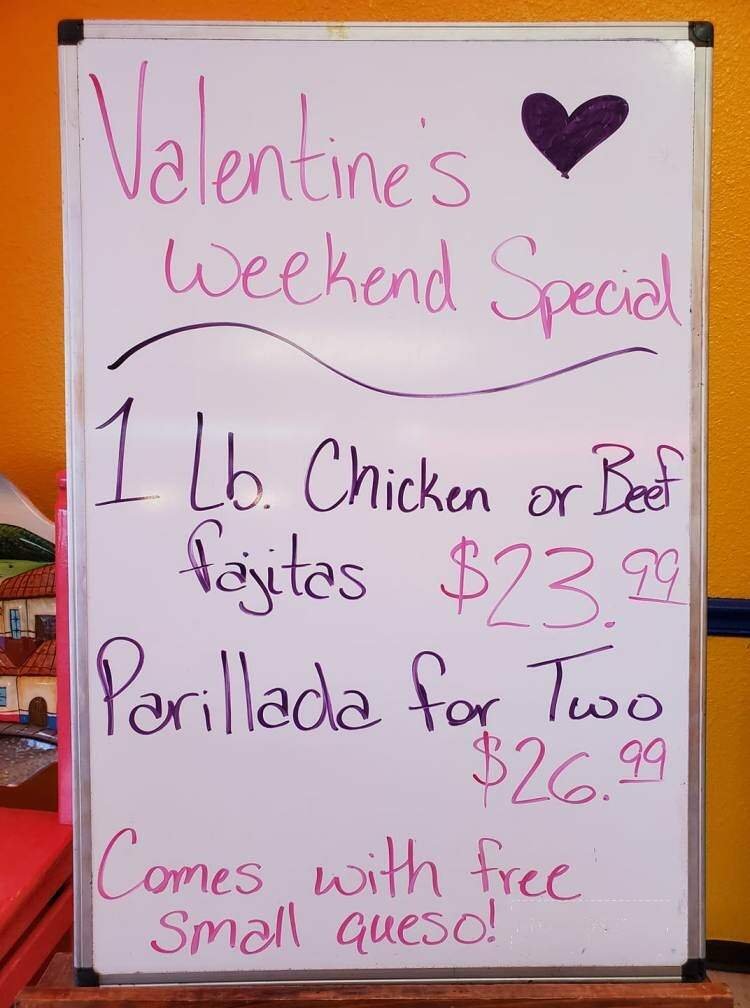 Valentine's
Weekend Special
1 Lb. Chicken or Beef
fajitas $23.99
Parillada for Two
$26.99
Comes with free
small queso!